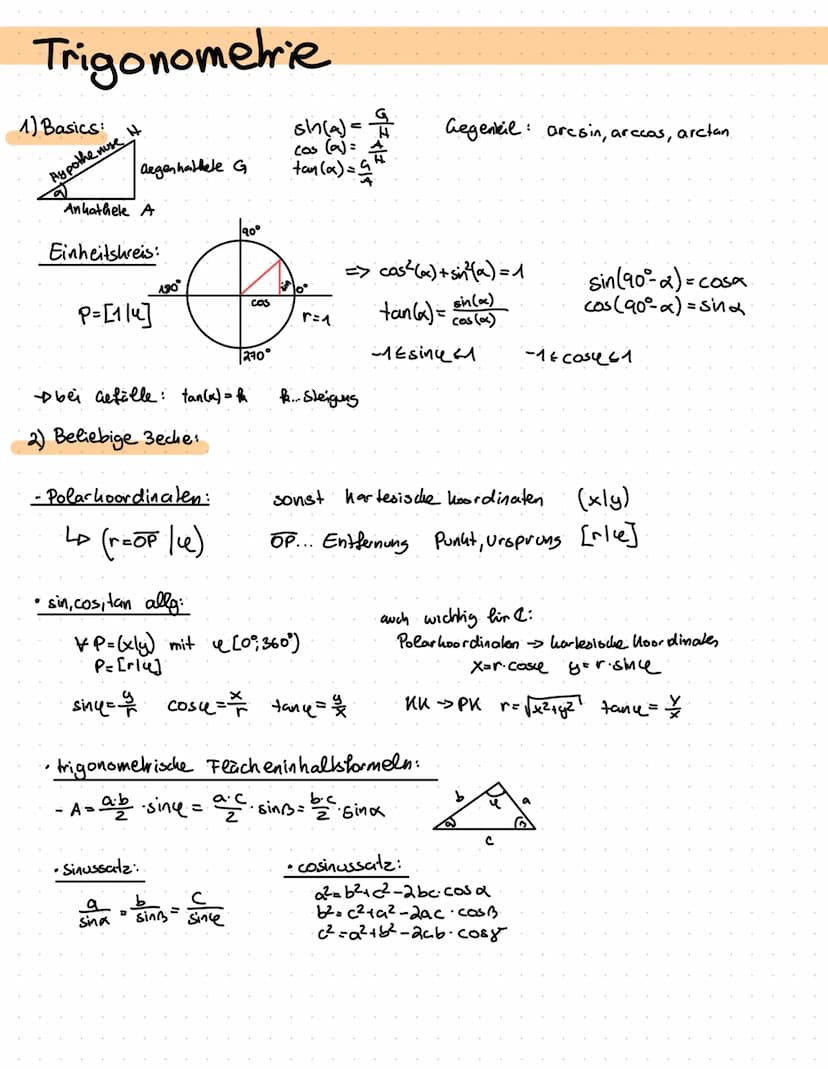 Trigonometrie
1) Basics:
Hypothenuse H
Gegenkathete G
α
Ankathete A
sin(α) = G/H
cos(α) = A/H
tan(α) = G/A
Gegenteil: arcsin, arccos, arctan
Einheitskreis:
90°
180°
0°
sin
cos
270°
r=1
P=[1|φ]
=> cos²(α)+sin²(α)=1
tan(α)= sin(α)/cos(α)
-1≤sinφ≤1 -1≤cosφ≤1
sin(90°-α)=cosα
cos(90°-α)=sinα
→ bei Gefälle: tan(α)=k k... Steigung
2) Beliebige 3ecke:
- Polarkoordinaten: sonst kartesische Koordinaten (x|y)
↳ (r=OP |φ) OP... Entfernung Punkt, Ursprung [r|φ]
• sin,cos,tan allg:
∀ P=(x|y) mit φ[0°;360°)
P=[r|φ]
sinφ=y/r cosφ=x/r tanφ=y/x
auch wichtig für ℂ:
Polarkoordinaten → kartesische Koordinaten
x=r·cosφ y=r·sinφ
KK → PK r=√x²+y² tanφ=y/x
• trigonometrische Flächeninhaltsformeln:
- A= a·b/2 ·sinφ = a·c/2 ·sinβ= b·c/2 ·sinα
b φ a
α β
c
• Sinussatz:
a/sinα = b/sinβ = c/sinφ
• cosinussatz:
a²=b²+c²-2bc·cosα
b²=c²+a²-2ac·cosβ
c²=a²+b²-2ab·cosγ